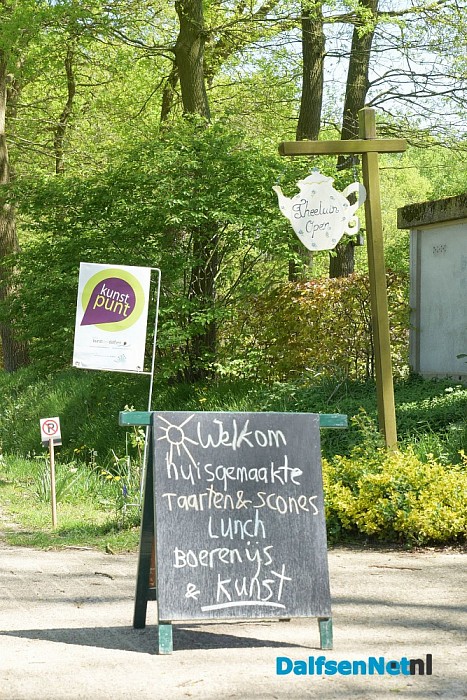 Theetuin
Open
kunst
punt
P
Welkom
huisgemaakte
Taarten & Scones
Lunch
Boerenijs
& kunst
DalfsenNet.nl